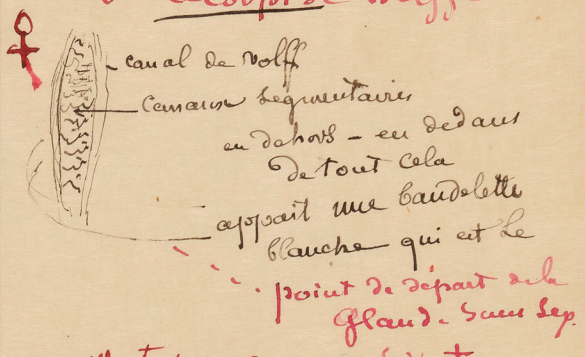 le corps de Wolff
canal de Wolff
Canaux segmentaires
en dehors – en dedans
De tout cela
apparit une bandelette
blanche qui est le
point de départ de la
Gland